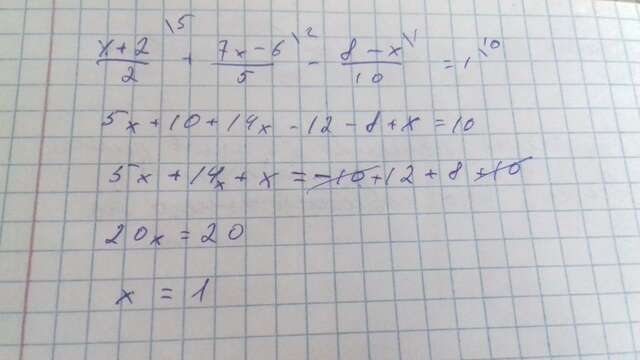 x+2/2 \5 + 7x-6/5 \2 - 8-x/10 \1 = 1 \10
5x+10+14x-12-8+x=10
5x+14x+x=-10+12+8+10
20x=20
x=1